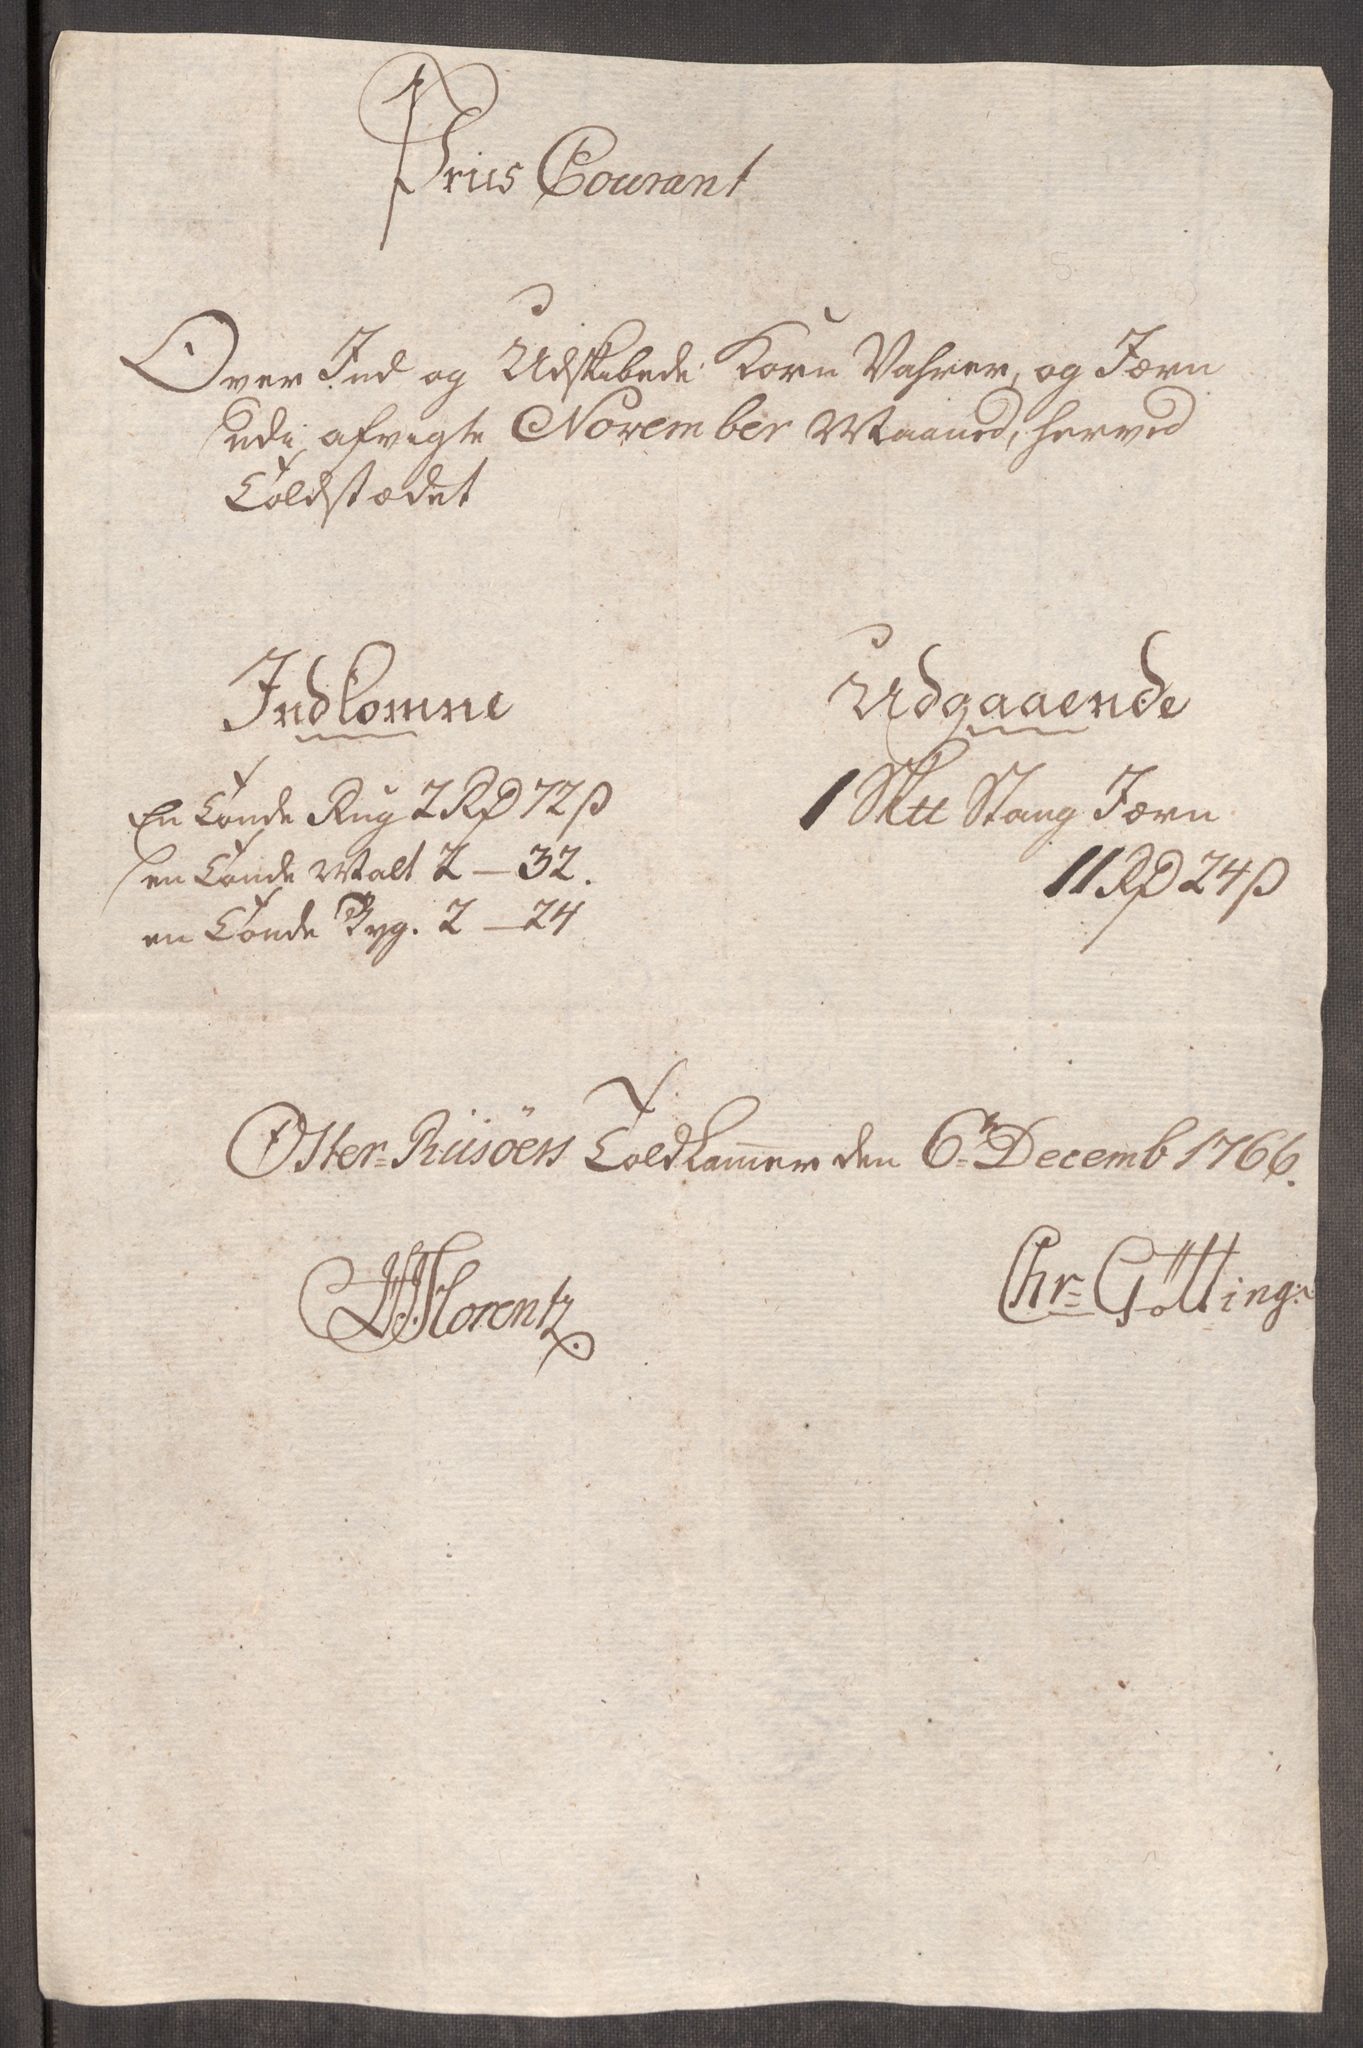 Priis Courant
Over Ind og Udskibede Korn Vahrer, og Jærn
udi afvigte November Maaned, herved
Toldstædet
Indkomne
Udgaaende
En Tønde Rug 2 Rd 72 ß
en Tønde Malt 2 — 32.
en Tønde Byg. 2 — 24
1 Sk℔ Stang Jærn
11 Rd 24 ß
Öster-Riisöers Toldkammer den 6te Decemb 1766.
Florentz
Chr= Götting